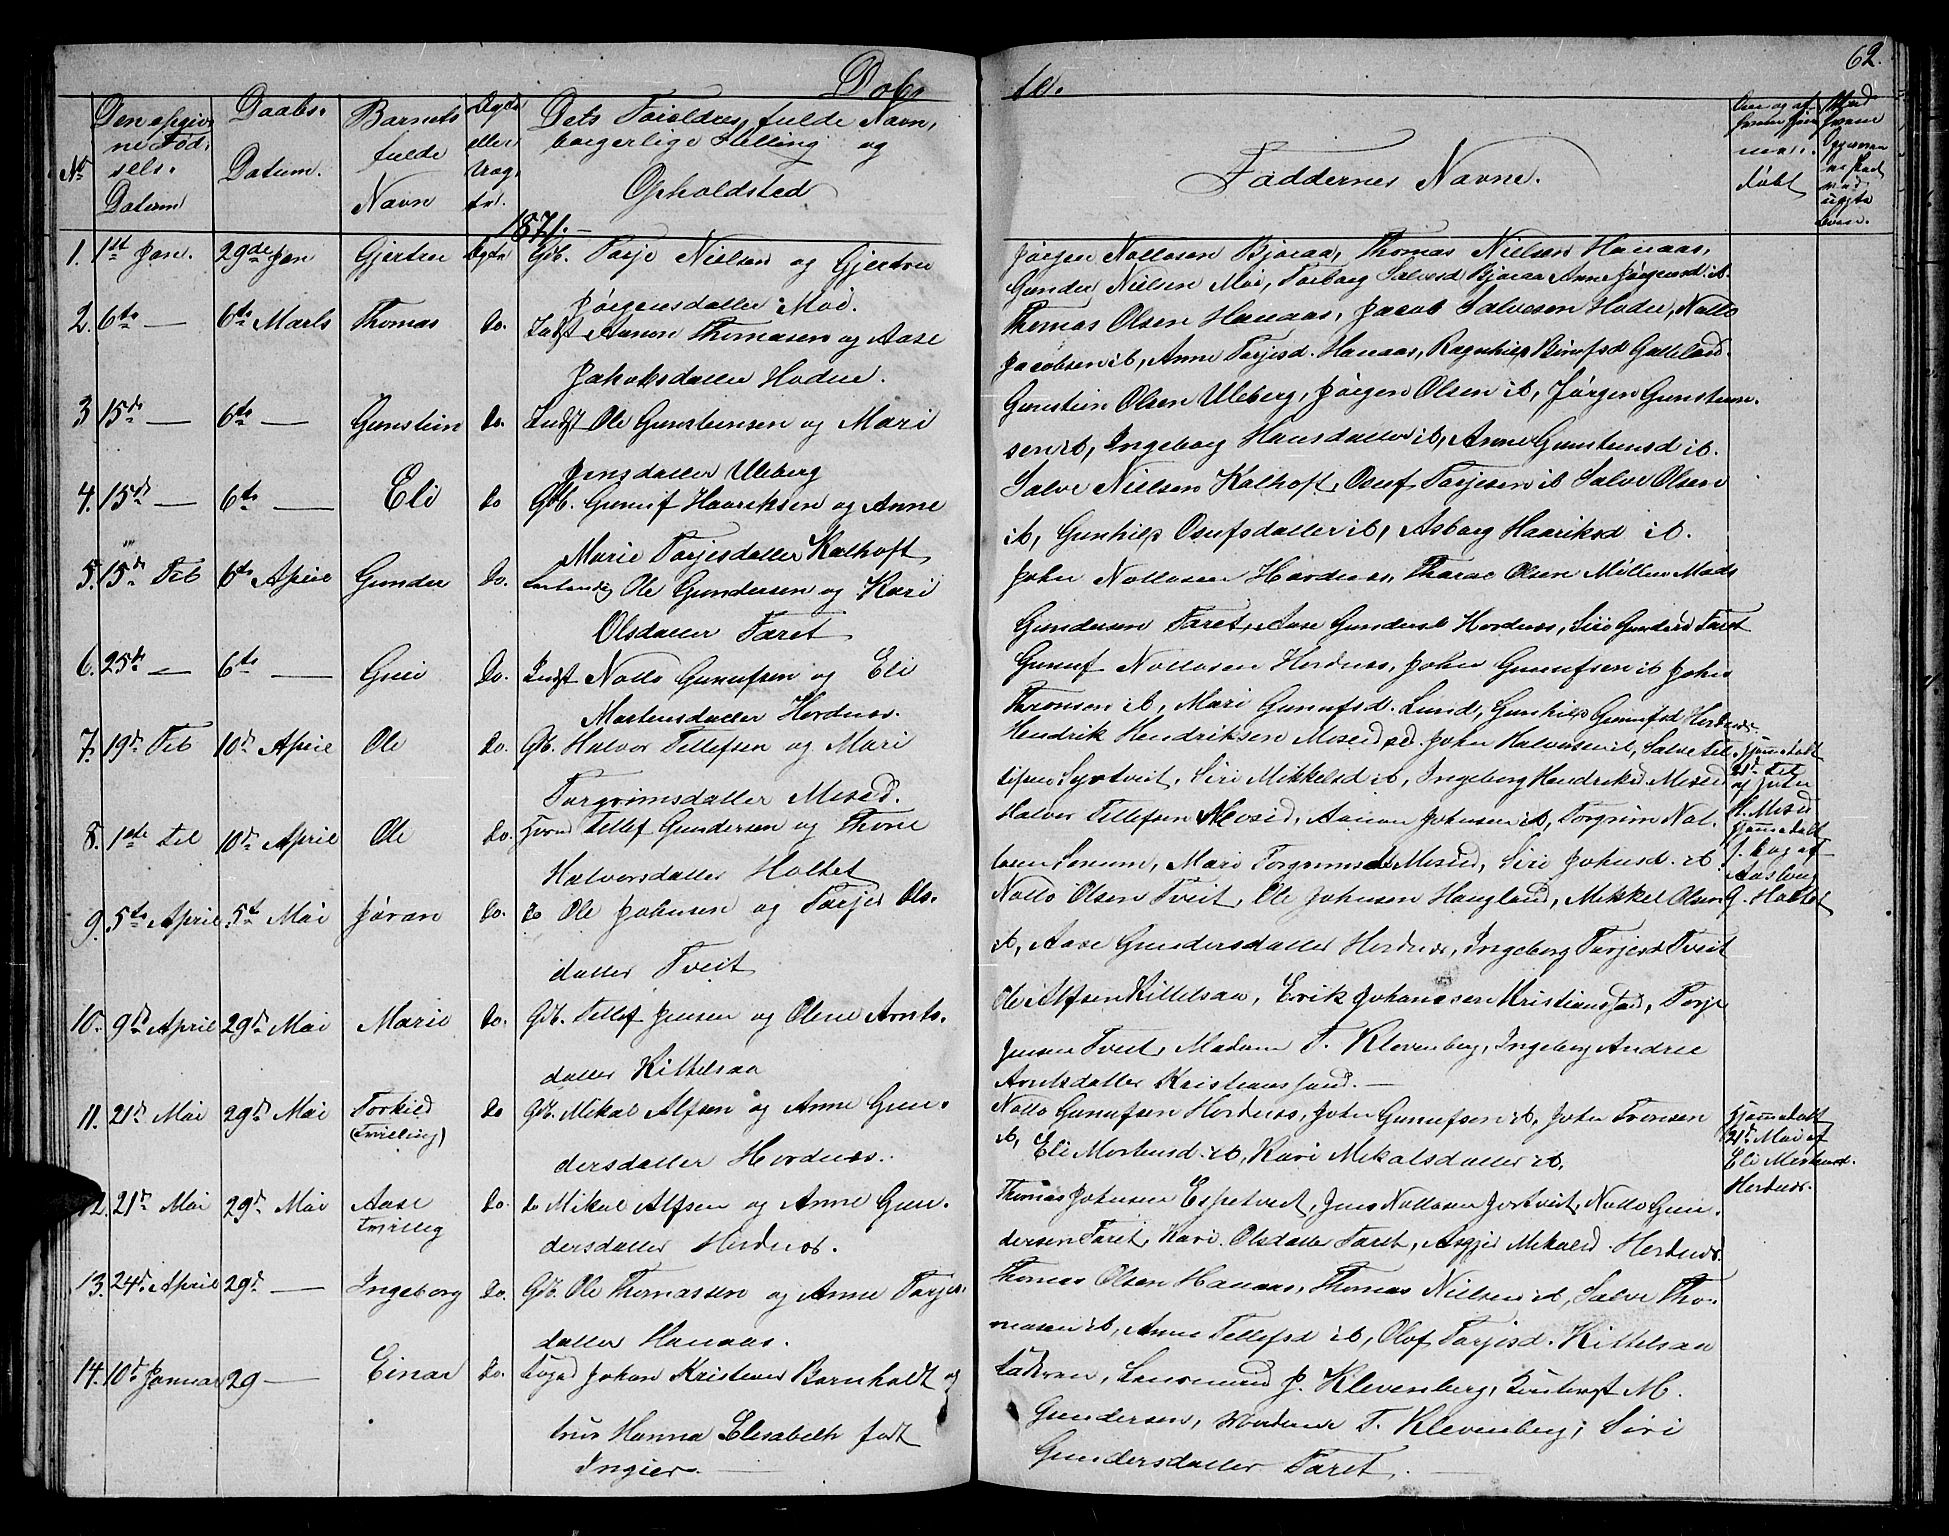 Døb-
te.
62.
No
Den opgiv-
ne Fød-
sels-
Datum
Daabs-
Datum.
Barnets
fulde
Navn
Ægte
eller
Uægte
Dets Forældres fulde Navn,
borgerlige Stilling og
Opholdsted
Faddernes Navne.
døbt
1871.
1. 1st Jan. 29de Jan Gjertru Ægte Gdb. Tarje Nielsen og Gjertru
Jørgensdatter Moi.
Jørgen Nottosen Bjoraa, Thomas Nielsen Hanaas,
Gunder Nielsen Moi, Torborg Salvesd Bjoraa Anne Jørgensd. ib.
2. 6te — 6te Marts Thomas Do. Indst Aanon Thomasen og Aase
Jakobsdatter Hodne.
Thomas Olsen Hanaas, Jacob Salvesen Hodne, Notto
Jacobsen ib, Anne Tarjesd. Hanaas, Ragnhild Galteland.
3 15de — 6te — Gunstein Do. Indst Ole Gunsteinsen og Mari
Jensdatter Uleberg
Gunstein Olsen Uleberg, Jørgen Olsen ib, Jørgen Gunstein-
sen ib, Ingeborg Hansdatter ib, Anne Gunsteinsd ib.
4. 15de — 6te — Eli do Gdb. Gunuf Haariksen og Anne
Marie Tarjesdatter Kalhoft
Salve Nielsen Kalhoft, Osuf Tarjesen ib Salve Olsen
ib, Gunhild Osufsdatter ib, Asborg Haariksd ib.
5. 15de Feb 6te April Gunder Do. Ole Gundersen og Kari
Olsdatter Faret
John Nottosen Hordnes, Olsen Møllen Mads
Gundersen Faret, Aase Gundersd Hordnes, Siri Gundersd Faret
6. 25de — 6te — Do. Indst Notto Gunufsen og Eli
Mortensdatter Hordnes.
Gunuf Nottosen Hordnes, John Gunufsen ib John
Tronsen ib, Mari Gunufsd. Lund, Gunhild Gunufsd Hordnes.
7. 19de Feb 10de April Ole Do. Gdb. Halvor Tellefsen og Mari
Torgrimsdatter Meseid.
Hendrik Hendriksen Meseid, John Halvorsen ib, Salve Tel-
lefsen Syrtveit, Siri Mikkelsd ib, Ingeborg Hendriksd. Meseid
Hjemedøbt
21de Feb
af
H. Meseid
8. 1ste Feb 10de April Ole Do. Tellef Gundersen og Thone
Halvorsdatter Holtet
Halvor Tellefsen Meseid, Aanon Johnsen ib, Torgrim Hal-
vorsen, Mari Torgrimsd. Meseid, Siri Johnsd. ib
Hjemedøbt
af
Aasborg
G. Holtet
9. 5te April 5te Mai Jøran Do. do Ole Johnsen og Torjer Ols-
datter Tveit
Notto Olsen Tveit, Ole Johnsen Haugland, Mikkel Olsen
ib, Aase Gundersdatter Hordnes, Ingeborg Tarjesd Tveit
10. 9de April 29de Mai Marie do. Gdb. Tellef Jensen og Olene Arnts-
datter Kittelsaa
Ole Alfsen Kittelsaa, Erik Johannesen Kristiansand, Torje
Jensen Tveit, Madam T. Klevenberg, Ingeborg Andrea
Arntsdatter Kristianssand. —
11. 21de Mai 29de Mai Torkild
(Tvilling) do Gdb. Mikal Alfsen og Anne Gun-
dersdatter Hordnes.
Notto Gunufsen Hordnes, John Gunufsen ib, John Tronsen
ib, Eli Mortensd. ib, Kari Mikalsdatter ib.
Hjemedøbt
21de Mai af
Eli Mortensd.
Hordnes.
12. 21de Mai 29de Mai Aase
Tvilling Do. do Mikal Alfsen og Anne Gun-
dersdatter Hordnes.
Thomas Johnsen Espetveit, Jens Nottosen Jortveit, Notto Gun-
dersen Faret, Kari Olsdatter Faret, Asgjer Mikalsd. Hordnes.
13. 24de April 29de — Ingeborg Do. Gdb. Ole Thomassen og Anne Tarjes-
datter Hanaas.
Thomas Olsen Hanaas, Thomas Nielsen ib, Salve Tho-
masen ib, Anne Tellefsd ib, Olof Tarjesd. Kittelsaa
14. 10de Januar 29 — Einar Do. Foged Johan Kristian Barnholdt og
Hanna Elisabeth født
Ingier. —
Faderen, Lensmand J. Klevenberg, M.
Gundersen, Madame T. Klevenberg, Siri
Gundersdatter Faret. —